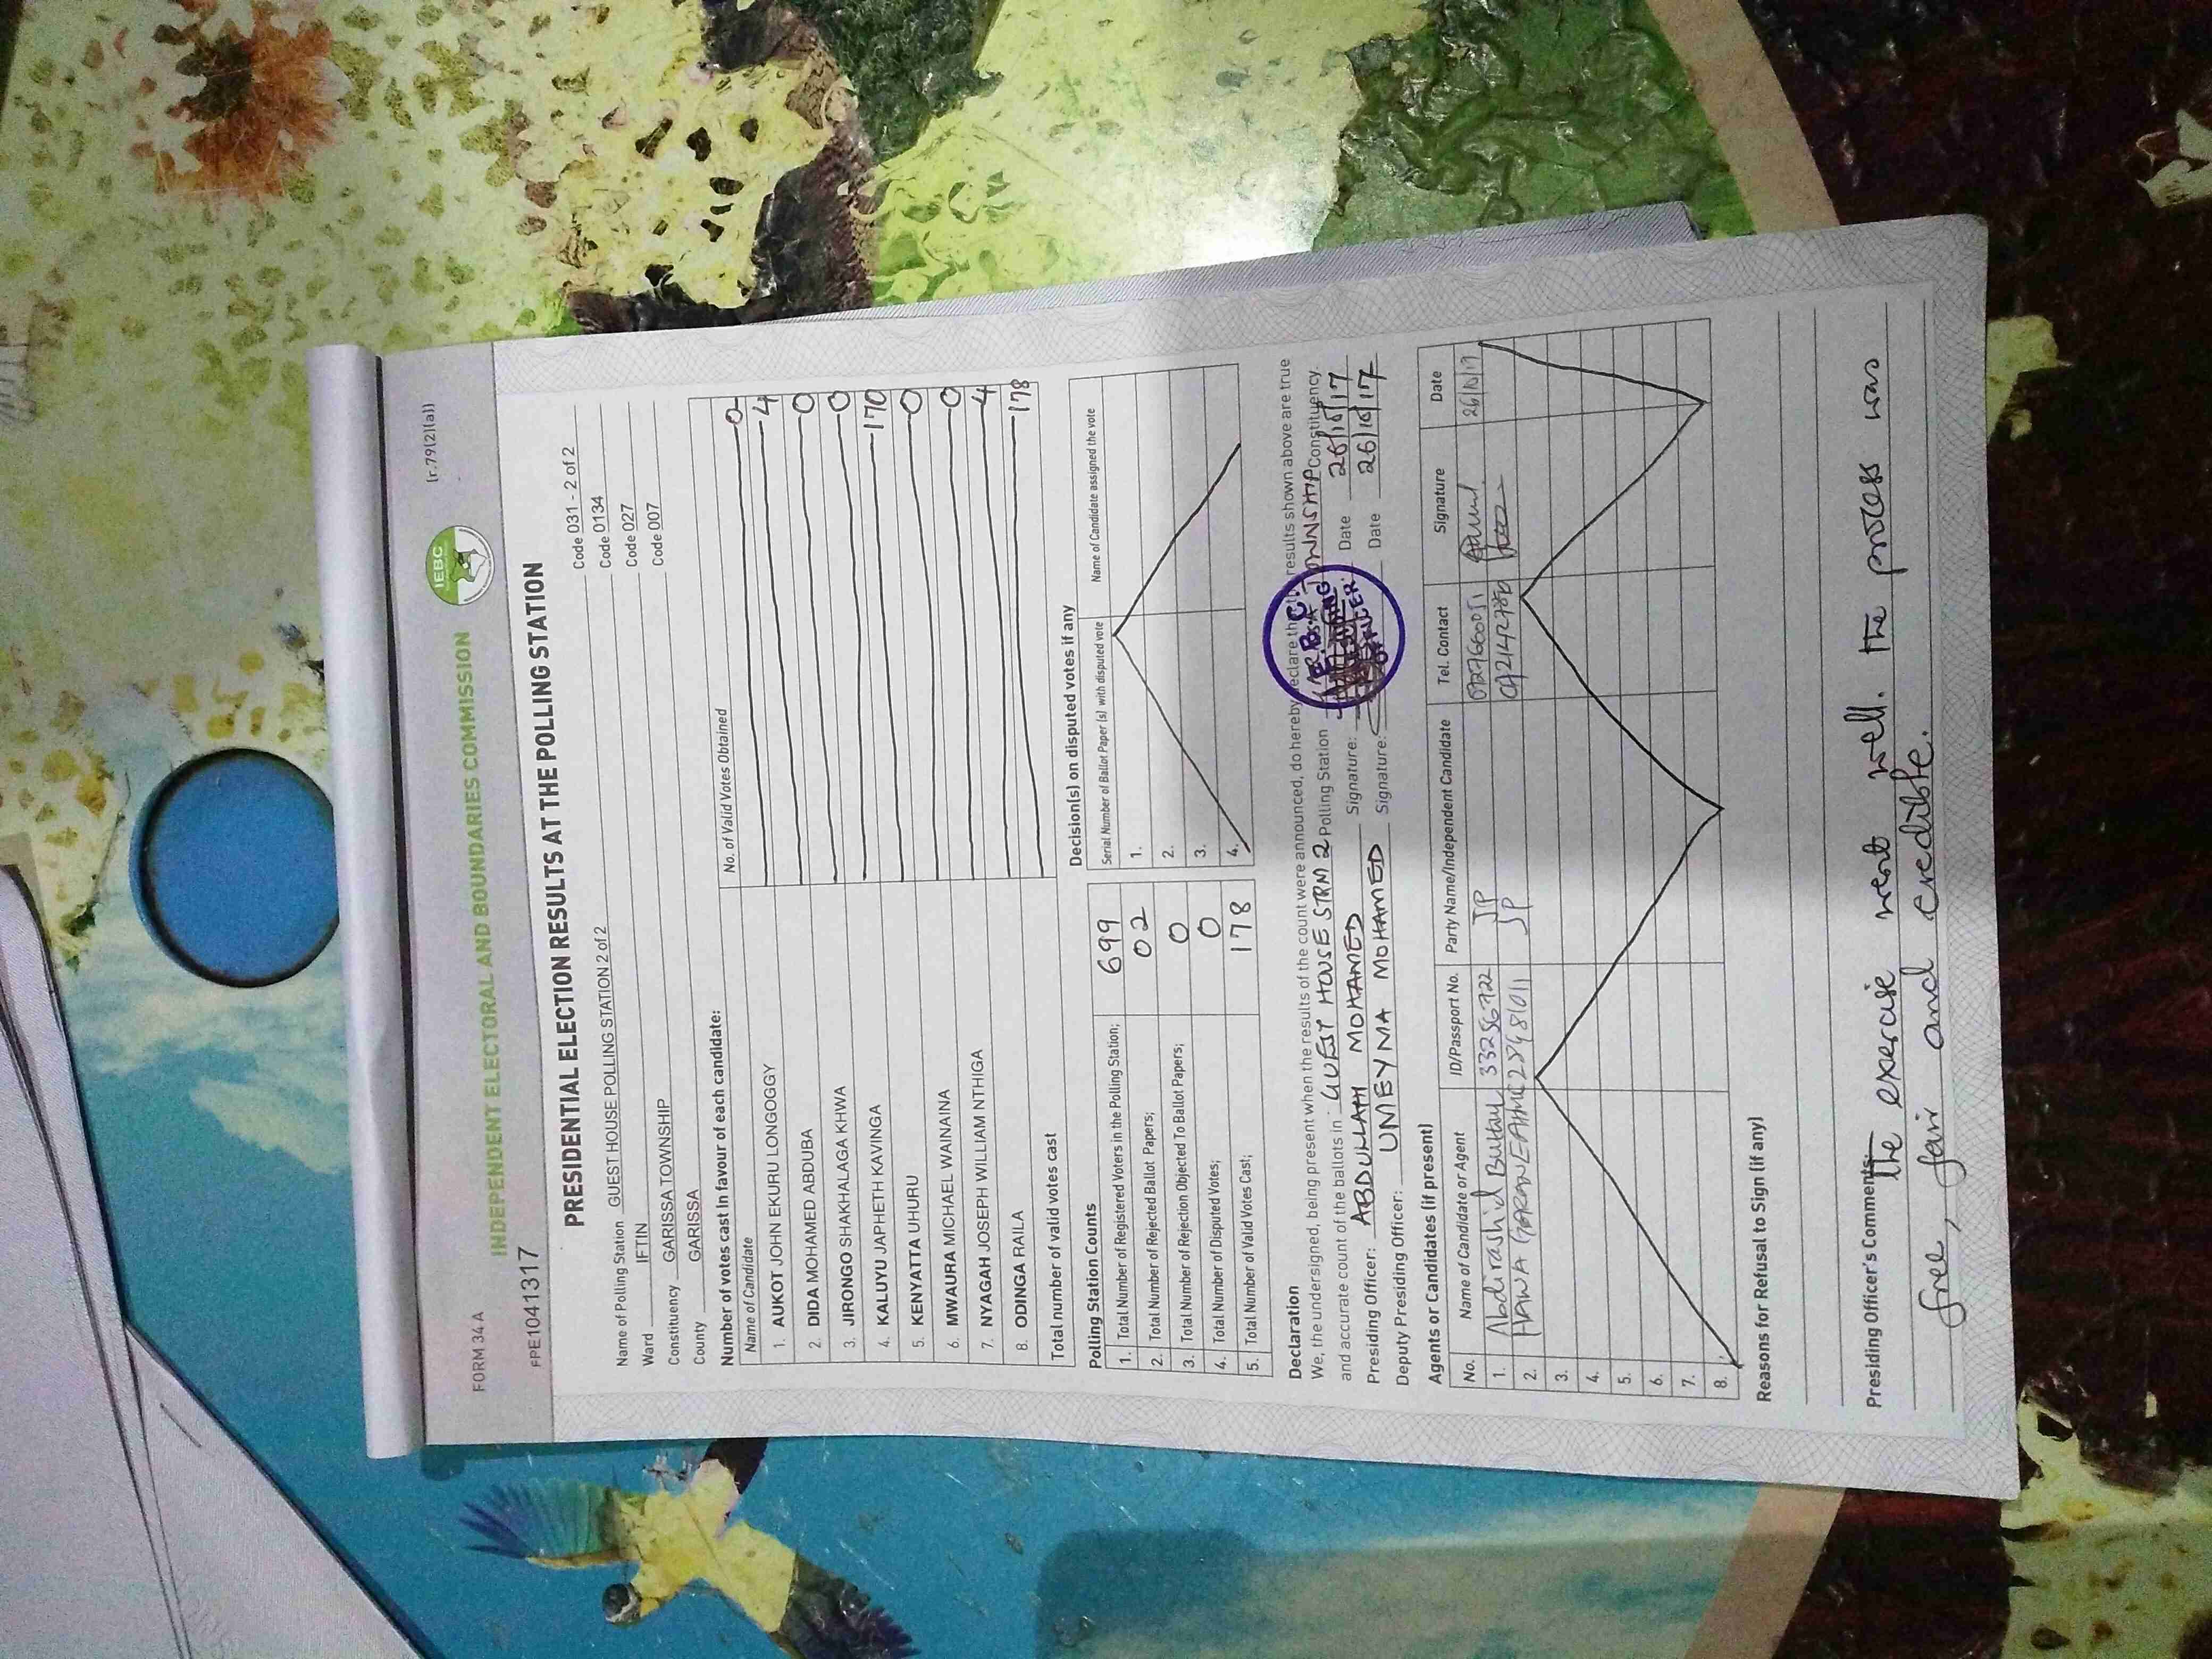 FORM 34 A
(r.79(2)(a))
IEBC
INDEPENDENT ELECTORAL AND BOUNDARIES COMMISSION
FPE1041317
PRESIDENTIAL ELECTION RESULTS AT THE POLLING STATION
Name of Polling Station GUEST HOUSE POLLING STATION 2 of 2 Code 031 - 2 of 2
Ward IFTIN Code 0134
Constituency GARISSA TOWNSHIP Code 027
County GARISSA Code 007
Number of votes cast in favour of each candidate:
Name of Candidate No. of Valid Votes Obtained
1. AUKOT JOHN EKURU LONGOGGY 0
2. DIDA MOHAMED ABDUBA 4
3. JIRONGO SHAKHALAGA KHWA 0
4. KALUYU JAPHETH KAVINGA 0
5. KENYATTA UHURU 170
6. MWAURA MICHAEL WAINAINA 0
7. NYAGAH JOSEPH WILLIAM NTHIGA 0
8. ODINGA RAILA 4
Total number of valid votes cast 178
Polling Station Counts
1. Total Number of Registered Voters in the Polling Station; 699
2. Total Number of Rejected Ballot Papers; 02
3. Total Number of Rejection Objected To Ballot Papers; 0
4. Total Number of Disputed Votes; 0
5. Total Number of Valid Votes Cast; 178
Decision(s) on disputed votes if any
Serial Number of Ballot Paper (s) with disputed vote Name of Candidate assigned the vote
1.
2.
3.
4.
Declaration
We, the undersigned, being present when the results of the count were announced, do hereby declare that the results shown above are true
and accurate count of the ballots in GUEST HOUSE STRM 2 Polling Station TOWNSHIP Constituency.
Presiding Officer: ABDULLAHI MOHAMED Signature: Date 26/10/17
Deputy Presiding Officer: UMEYMA MOHAMED Signature: Date 26/10/17
I.E.B.C.
OFFICER
Agents or Candidates (if present)
No. Name of Candidate or Agent ID/Passport No. Party Name/Independent Candidate Tel. Contact Signature Date
1. Abdirashid 33256722 JP 26/10/17
2. HAWA JP
3.
4.
5.
6.
7.
8.
Reasons for Refusal to Sign (if any)
Presiding Officer's Comments: the exercise went well. the process was
free, fair and credible.